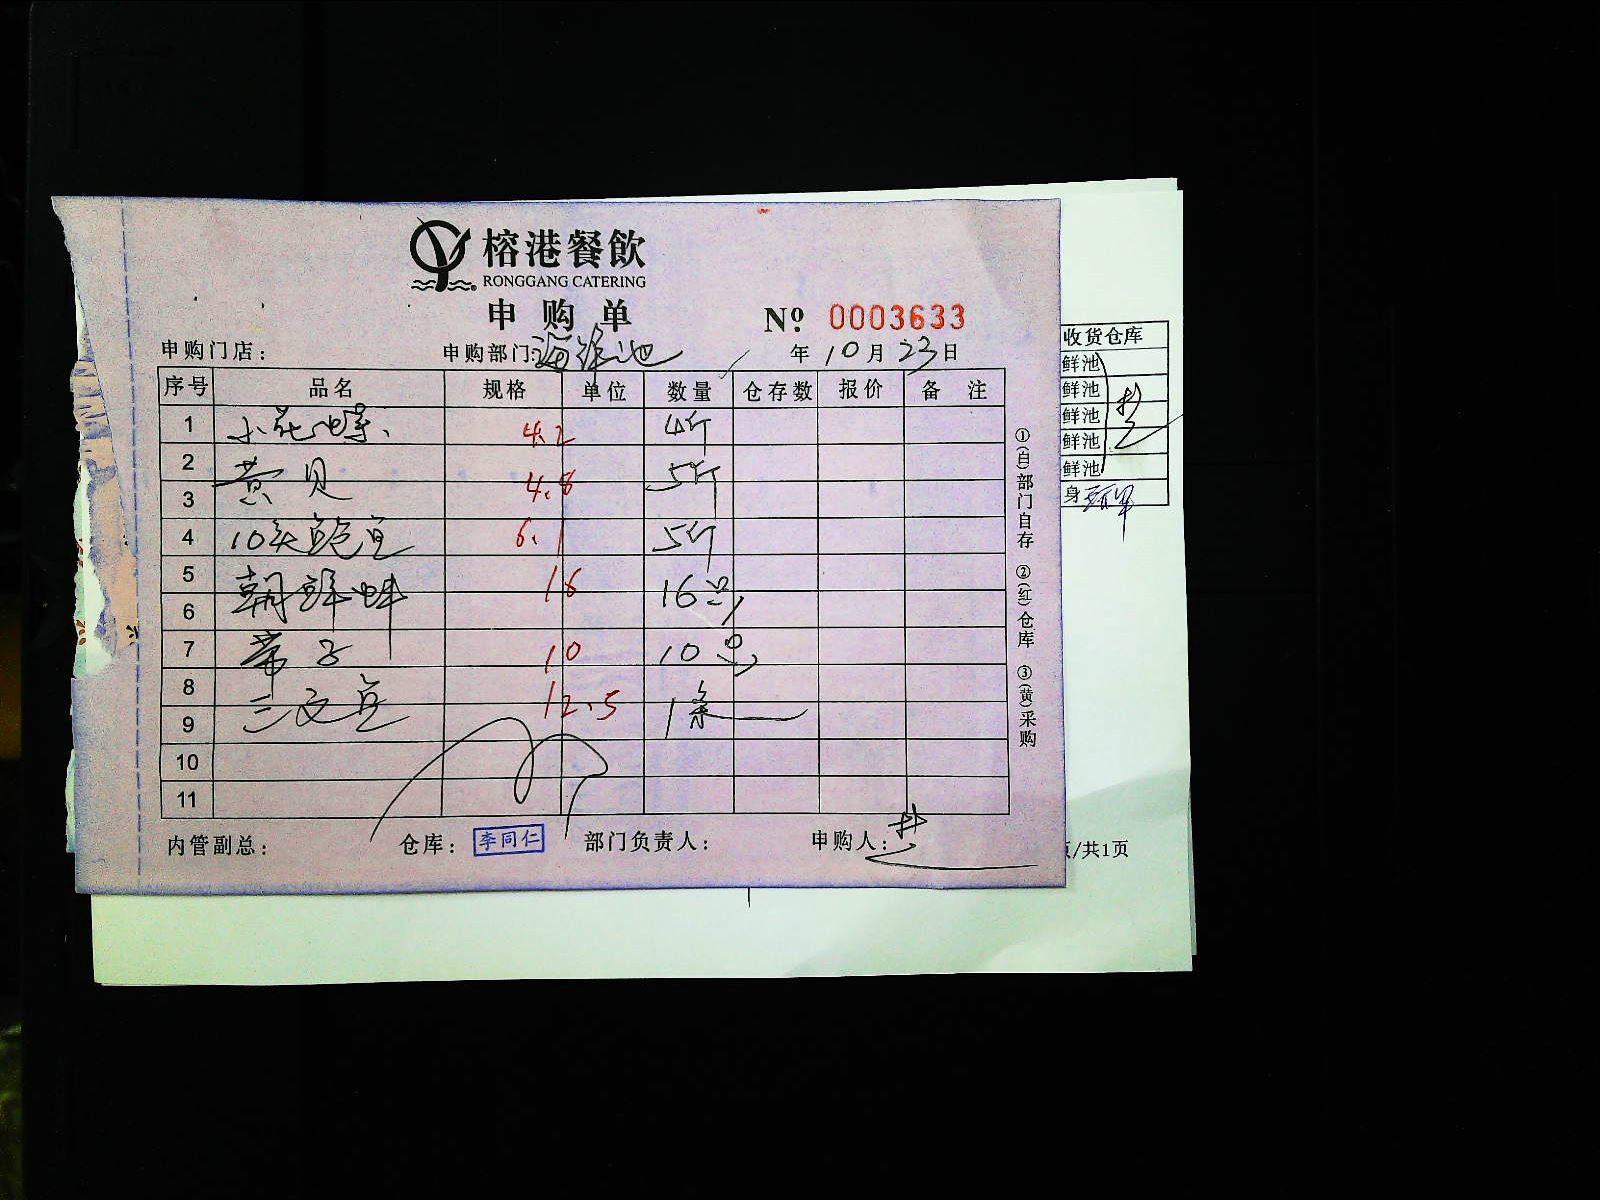 榕港餐飲
RONGGANG CATERING
申购单 Nº 0003633
申购门店： 申购部门：海鲜池 年 10 月 23 日
序号 品名 规格 单位 数量 仓存数 报价 备注
1 小花螺 4.2 4斤
2
黄贝 4.8 5斤
3
4 10头鲍鱼 6.1 5斤
5
朝鲜蚌 16 16只
6
7 带子 10 10只
8
三文鱼 12.5 1条
9
10
11
内管副总： 仓库：李同仁 部门负责人： 申购人：
①(白)部门自存 ②(红)仓库 ③(黄)采购
收货仓库
鲜池
鲜池
鲜池
鲜池
鲜池
身
页/共1页